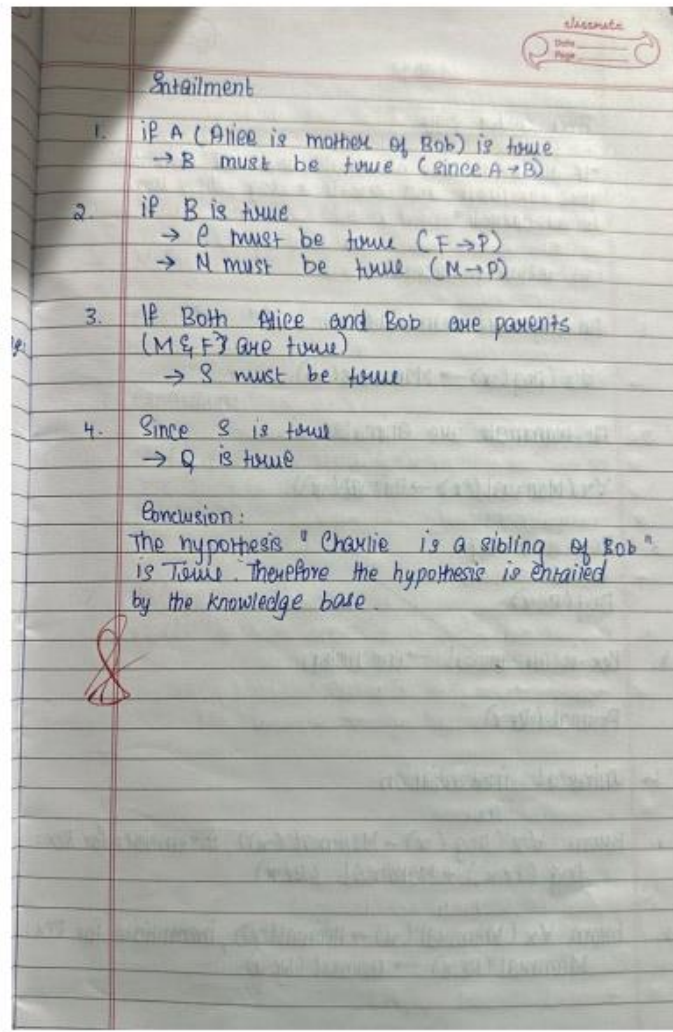 classmate
Date
Page
Entailment
1. if A (Alice is mother of Bob) is true
→ B must be true (since A→B)
2. if B is true
→ C must be true (F→P)
→ N must be true (M→P)
3. If Both Alice and Bob are parents
(M & F} are true)
→ S must be true
4. Since S is true
→ Q is true
Conclusion:
The hypothesis " Charlie is a sibling of Bob"
is True. Therefore the hypothesis is entailed
by the knowledge base.